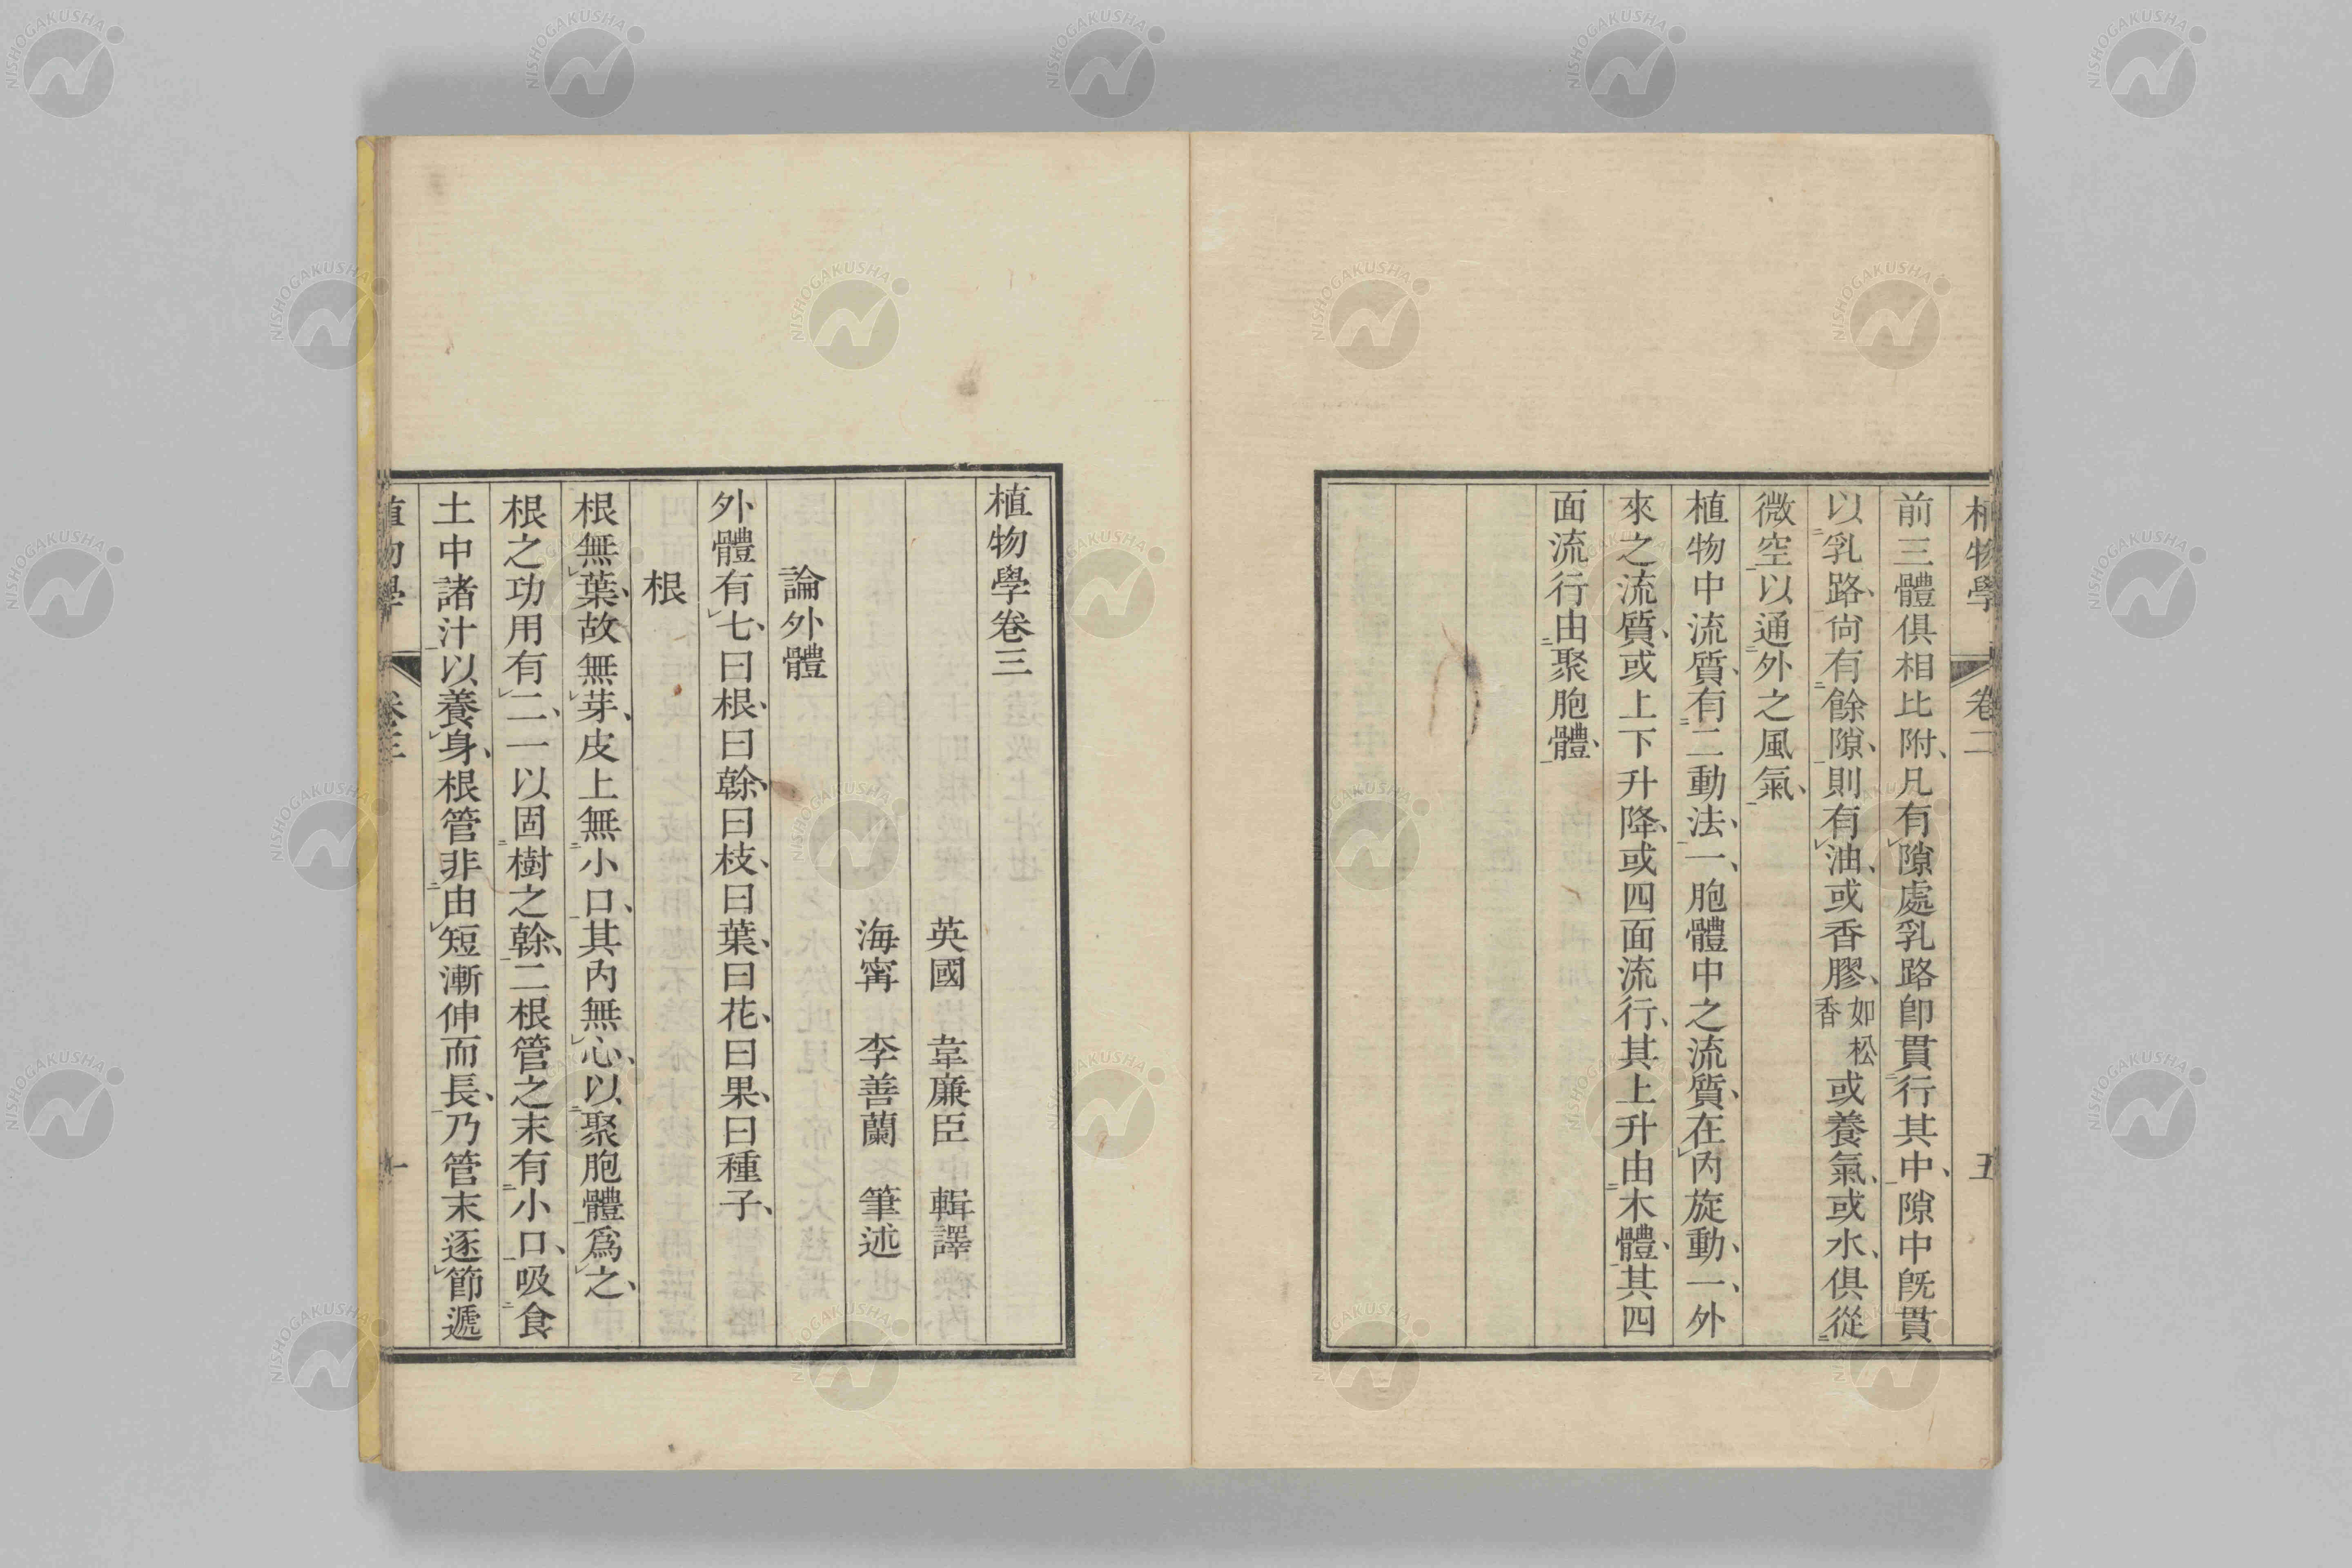 植物學 卷二 五
前三體俱相比附、凡有隙處乳路卽貫行其中、隙中旣貫
以乳路、尙有餘隙、則有油、或香膠、如松香或養氣、或水、俱從
微空以通外之風氣、
植物中流質、有二動法、一、胞體中之流質、在內旋動、一、外
來之流質、或上下升降、或四面流行、其上升由木體、其四
面流行由聚胞體、
植物學卷三
英國 韋廉臣 輯譯
海甯 李善蘭 筆述
論外體
外體有七、曰根、曰榦、曰枝、曰葉、曰花、曰果、曰種子、
根
根無葉、故無芽、皮上無小口、其內無心、以聚胞體爲之、
根之功用有二、一以固樹之榦、二根管之末有小口、吸食
土中諸汁以養身、根管非由短漸伸而長、乃管末逐節遞
植物學 卷三 一
NISHOGAKUSHA